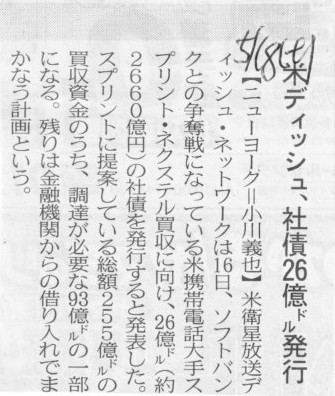 5/18(土)
米ディッシュ、社債26億㌦発行
【ニューヨーク＝小川義也】米衛星放送デ
ィッシュ・ネットワークは16日、ソフトバン
クとの争奪戦になっている米携帯電話大手ス
プリント・ネクステル買収に向け、26億㌦（約
２６６０億円）の社債を発行すると発表した。
スプリントに提案している総額２５５億㌦の
買収資金のうち、調達が必要な93億㌦の一部
になる。残りは金融機関からの借り入れでま
かなう計画という。